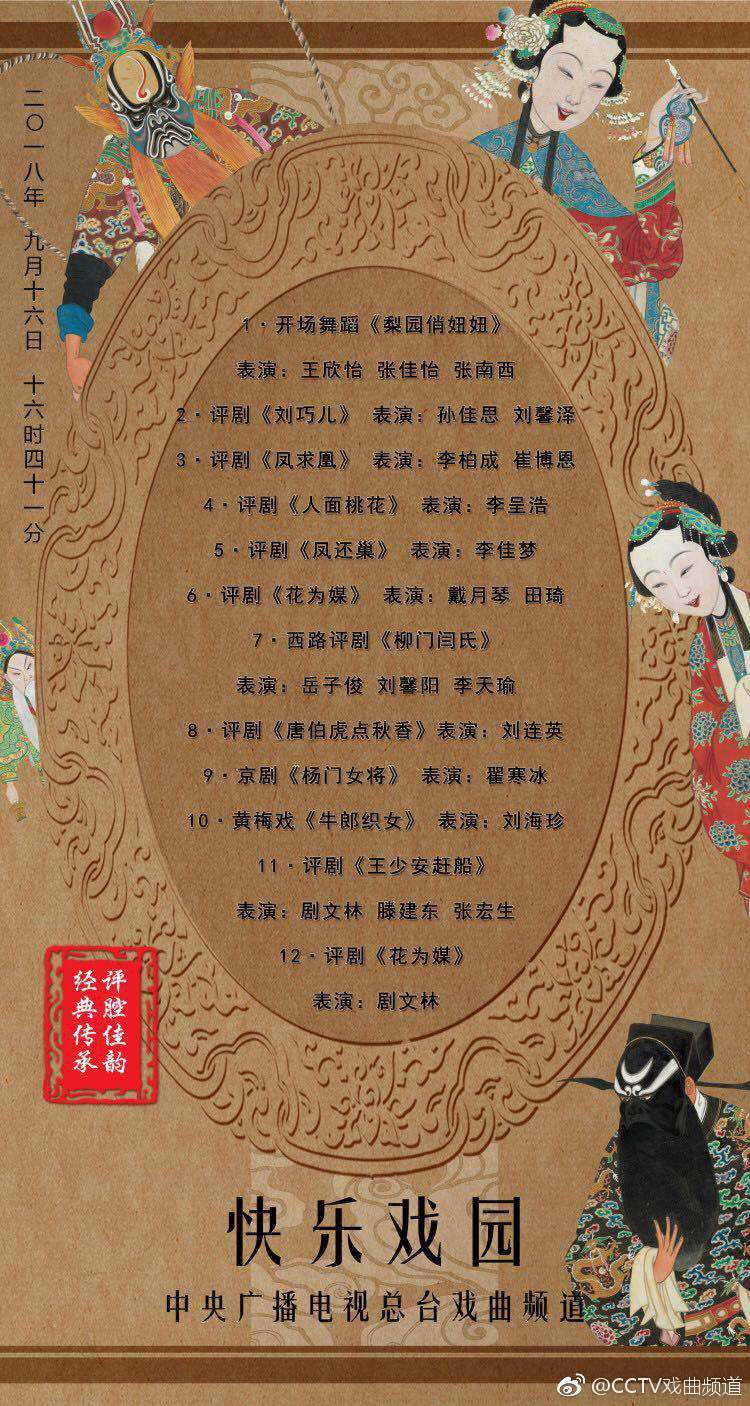 二〇一八年 九月十六日 十六时四十一分
1·开场舞蹈《梨园俏妞妞》
表演：王欣怡 张佳怡 张南西
2·评剧《刘巧儿》 表演：孙佳思 刘馨泽
3·评剧《凤求凰》 表演：李柏成 崔博恩
4·评剧《人面桃花》 表演：李呈浩
5·评剧《凤还巢》 表演：李佳梦
6·评剧《花为媒》 表演：戴月琴 田琦
7·西路评剧《柳门闫氏》
表演：岳子俊 刘馨阳 李天瑜
8·评剧《唐伯虎点秋香》表演：刘连英
9·京剧《杨门女将》 表演：翟寒冰
10·黄梅戏《牛郎织女》 表演：刘海珍
11·评剧《王少安赶船》
表演：剧文林 滕建东 张宏生
12·评剧《花为媒》
表演：剧文林
评腔佳韵
经典传承
快乐戏园
中央广播电视总台戏曲频道
@CCTV戏曲频道